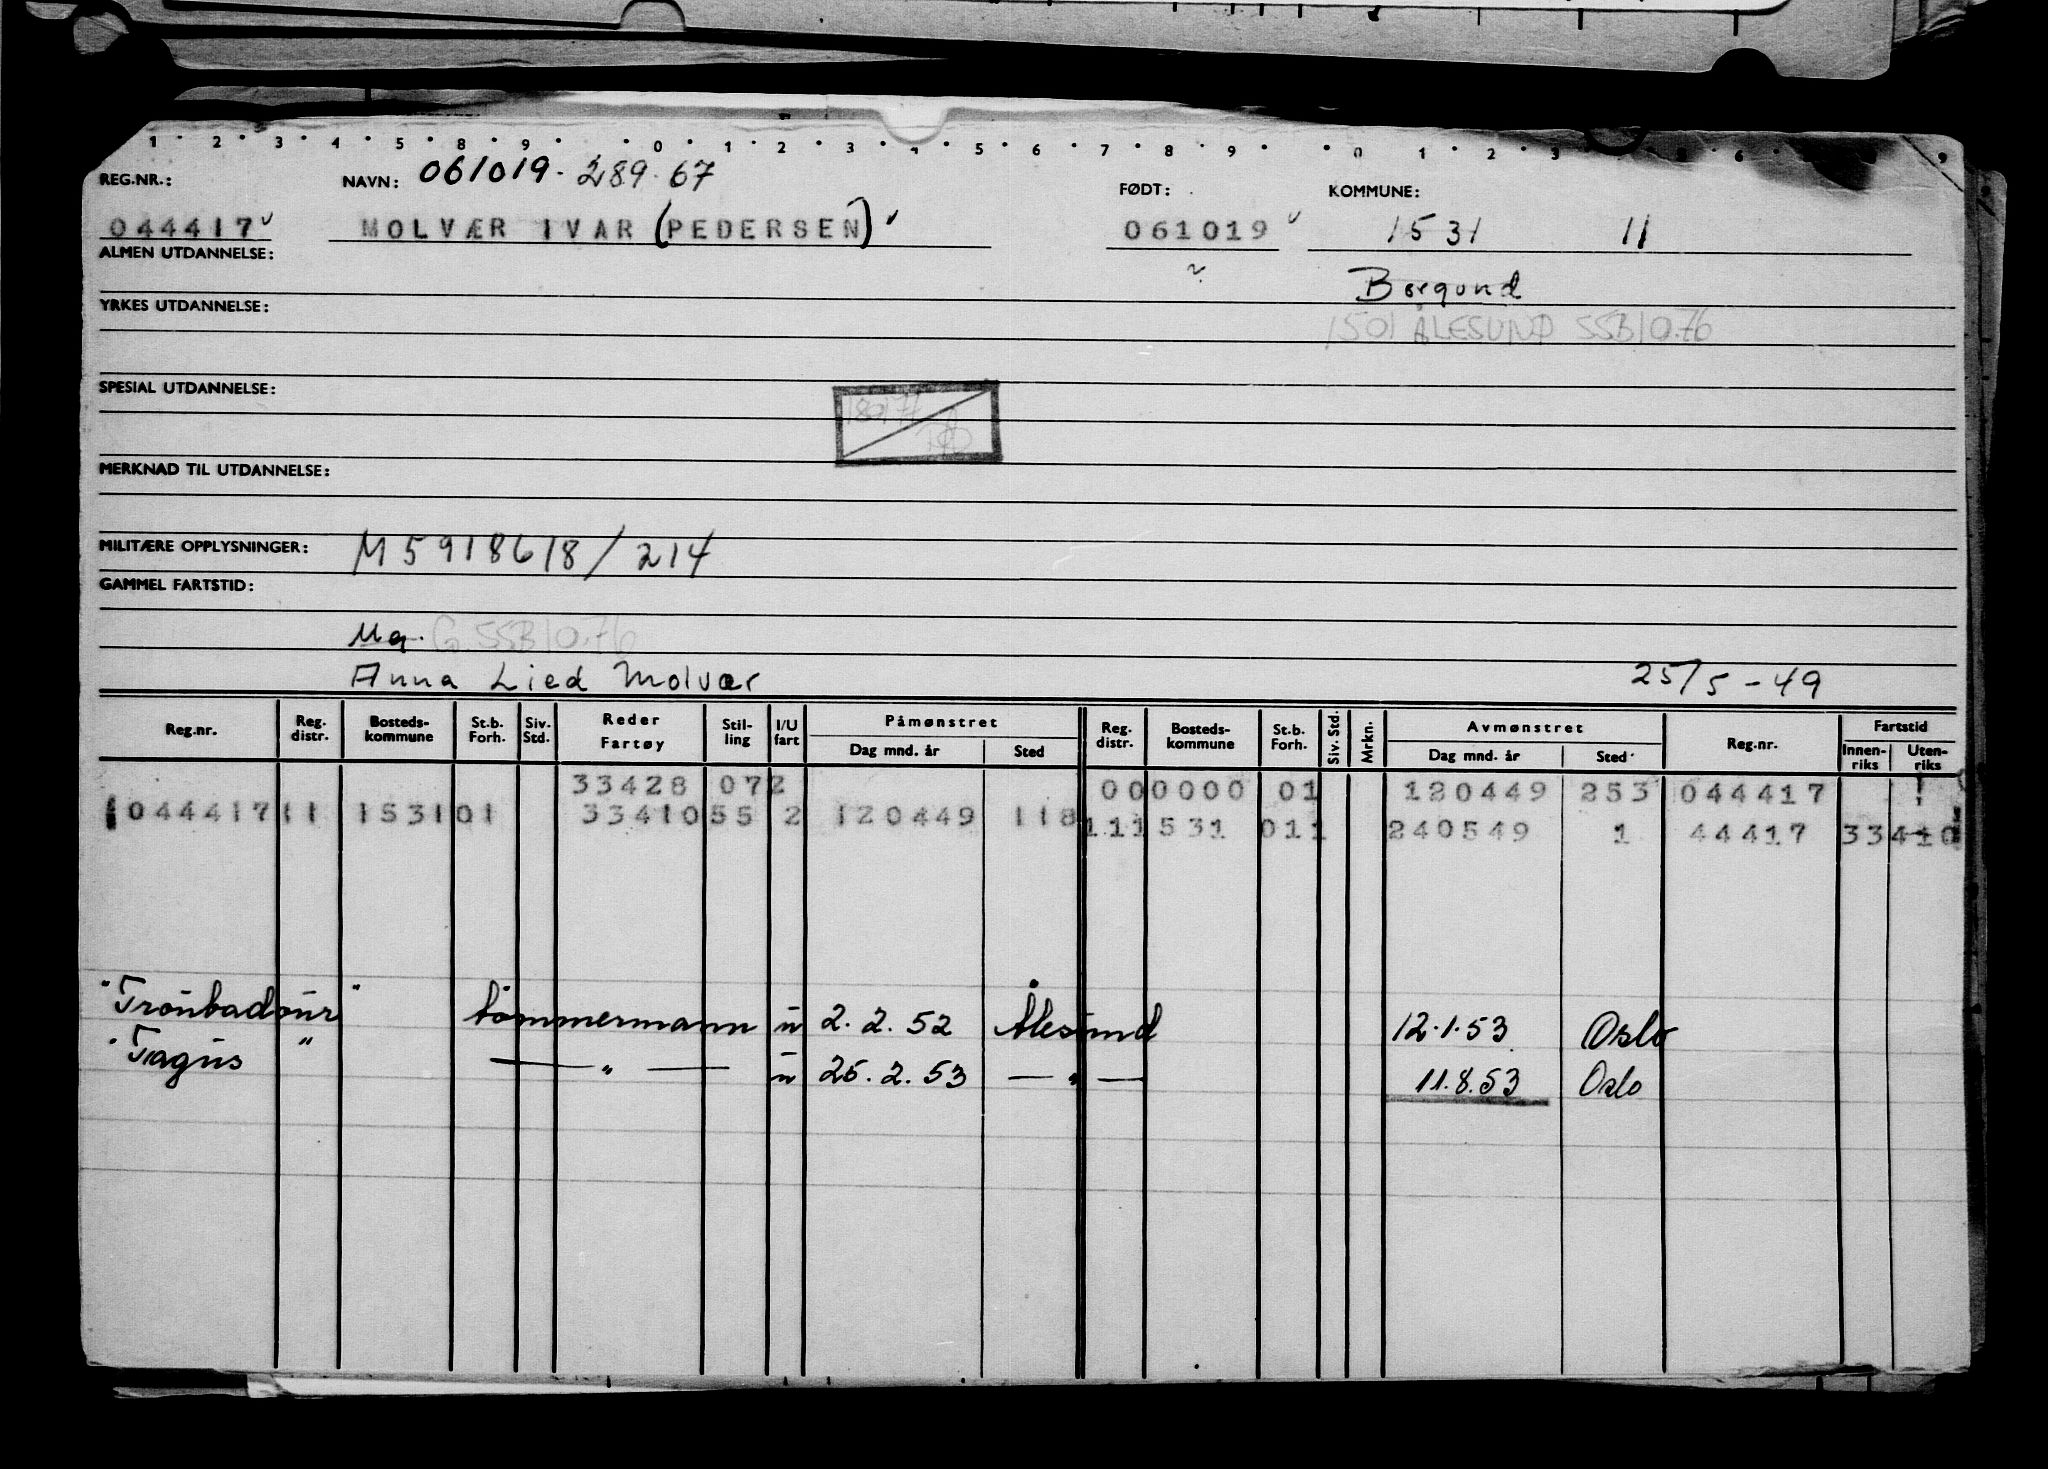 1 2 3 4 5 6 7 8 9 0 1 2 3 4 5 6 7 8 9 0 1 2 3 5 6 9
REG.NR.: NAVN: 061019-289-67 FØDT: KOMMUNE:
044417 MOLVÆR IVAR (PEDERSEN) 061019 1531 11
ALMEN UTDANNELSE: Borgund
YRKES UTDANNELSE:
1501 ÅLESUND SSB10.76
SPESIAL UTDANNELSE:
MERKNAD TIL UTDANNELSE:
MILITÆRE OPPLYSNINGER: M5918618/214
GAMMEL FARTSTID:
G. SSB10.76
Anna Lied Molvær 25/5-49
Reg.nr. Reg. distr. Bosteds-kommune St.b. Forh. Siv. Std. Reder Fartøy Stil-ling I/U fart Påmønstret Dag mnd. år Sted Reg. distr. Bosteds-kommune St.b. Forh. Siv. Std. Mrkn. Avmønstret Dag mnd. år Sted Reg.nr. Fartstid Innen-riks Uten-riks
33428 072 000000 01 120449 253 044417
044417 11 1531 01 33410 55 2 120449 118 11 1531 011 240549 1 44417 33410
"Troubadour" tømmermann u 2.2.52 Ålesund 12.1.53 Oslo
"Tagus" — " — u 25.2.53 — " — 11.8.53 Oslo